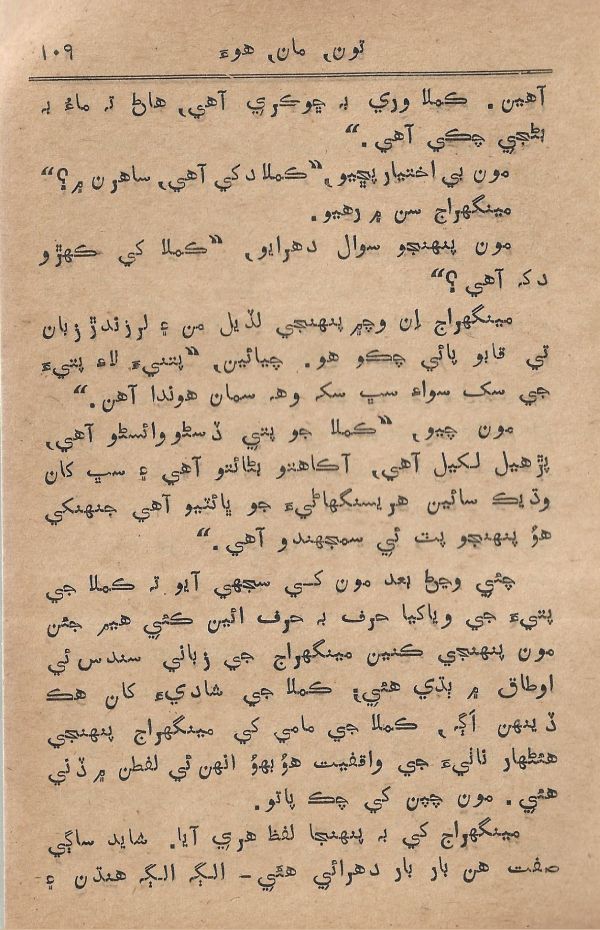 تون، مان، هوءَ ١٠٩
آهين. ڪملا وري به ڇوڪري آهي، هاڻ ته ماءُ به
بڻجي چڪي آهي.“
مون بي اختيار پڇيو، ”ڪملا دکي آهي، ساهرن ۾؟“
مينگهراج سن ۾ رهيو.
مون پنهنجو سوال دهرايو، ”ڪملا کي ڪهڙو
دک آهي؟“
مينگهراج اِن وچ۾ پنهنجي لڏيل من ۽ لرزندڙ زبان
تي قابو پائي چڪو هو. چيائين، ”پتنيءَ لاءِ پتيءَ
جي سک سواءِ سڀ سک وهه سمان هوندا آهن.“
مون چيو، ”ڪملا جو پتي ڏسڻو وائسڻو آهي،
پڙهيل لکيل آهي، آڪاهتو بڻائتو آهي ۽ سڀ کان
وڌيڪ سائين هربسنگهاڻيءَ جو ڀائٽيو آهي جنهنکي
هوُ پنهنجو پٽ ئي سمجهندو آهي.“
چئي وڃڻ بعد مون کي سجهي آيو ته ڪملا جي
پتيءَ جي وياکيا حرف به حرف ائين ڪئي هيم جئن
مون پنهنجي ڪنين مينگهراج جي زباني سندس ئي
اوطاق ۾ ٻڌي هئي؛ ڪملا جي شاديءَ کان هڪ
ڏينهن اڳ، ڪملا جي مامي کي مينگهراج پنهنجي
هئڻهار ناٺيءَ جي واقفيت هوُ بهوُ انهن ئي لفظن ۾ ڏني
هئي. مون چپن کي چڪ پاتو.
مينگهراج کي به پنهنجا لفظ هري آيا. شايد ساڳي
صفت هن بار بار دهرائي هئي – الڳ الڳ هنڌن ۽